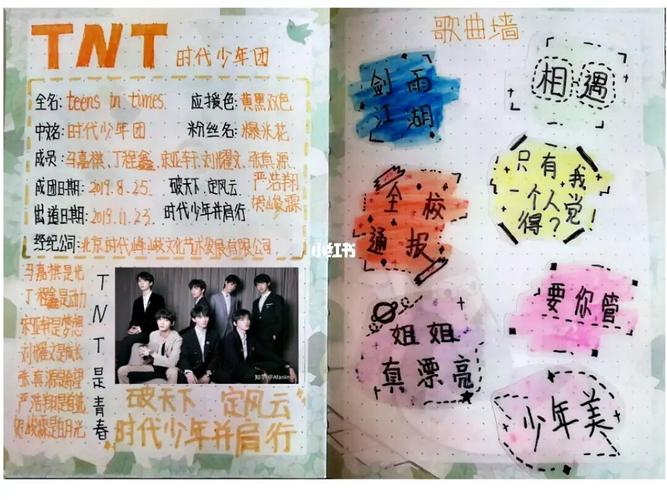 TNT 时代少年团
全名: teens in times 应援色: 黄黑双色
中文名: 时代少年团 粉丝名: 爆米花
成员: 马嘉祺、丁程鑫、宋亚轩、刘耀文、张真源、
严浩翔
贺峻霖
成团日期: 2019.8.25.
出道日期: 2019.11.23.
破天下 定风云
时代少年并肩行
经纪公司: 北京时代峰峻文化艺术发展有限公司
马嘉祺是光
丁程鑫是动力
宋亚轩是梦想
刘耀文是成长
张真源是希望
贺峻霖是白月光
TNT是青春
知乎 @Afanning
破天下 定风云
时代少年并肩行
小红书
歌曲墙
剑雨
江湖
相遇
全校
通报
只有我
一个人觉
得?!
要你管
姐姐
真漂亮
少年美